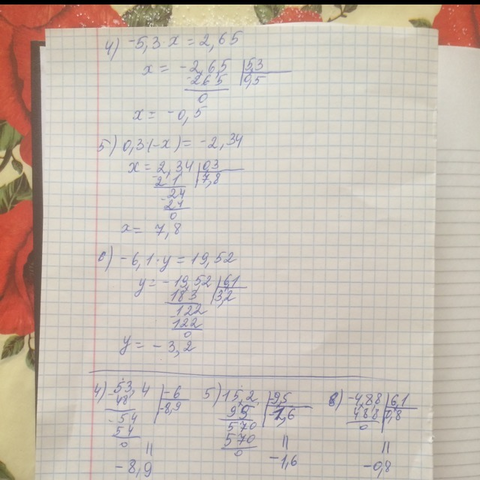 4) -5,3·x = 2,65
x = -2,65 | 5,3
-265 | 0,5
0
x = -0,5
5) 0,3·(-x) = -2,34
x = 2,34 | 0,3
21 | 7,8
-24
24
0
x = 7,8
6) -6,1·y = 19,52
y = -19,52 | 6,1
183 | 3,2
-122
122
0
y = -3,2
4) 53,4 | -6
48 | -8,9
-54
54
0 ||
-8,9
5) 15,2 | 9,5
95 | -1,6
570
570
0 ||
-1,6
-4,88 | 6,1
488 | 0,8
0 ||
-0,8